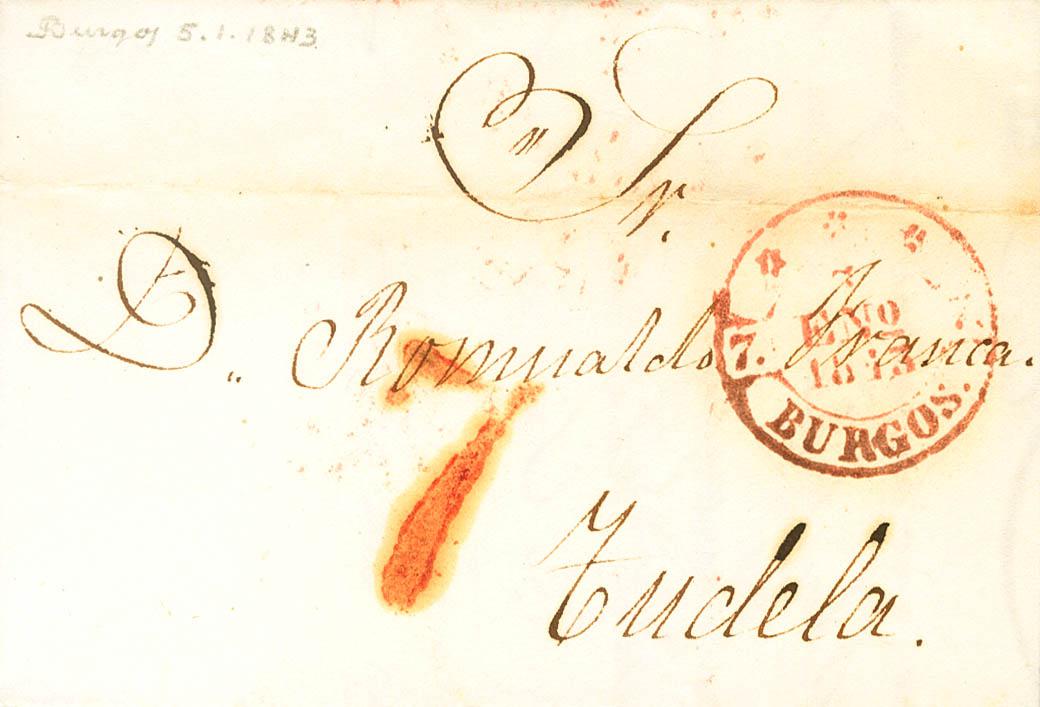 Burgos 5.1.1843
Sr.
D. Romualdo Franca.
7
7
ENO
1843
7.
BURGOS.
Tudela.